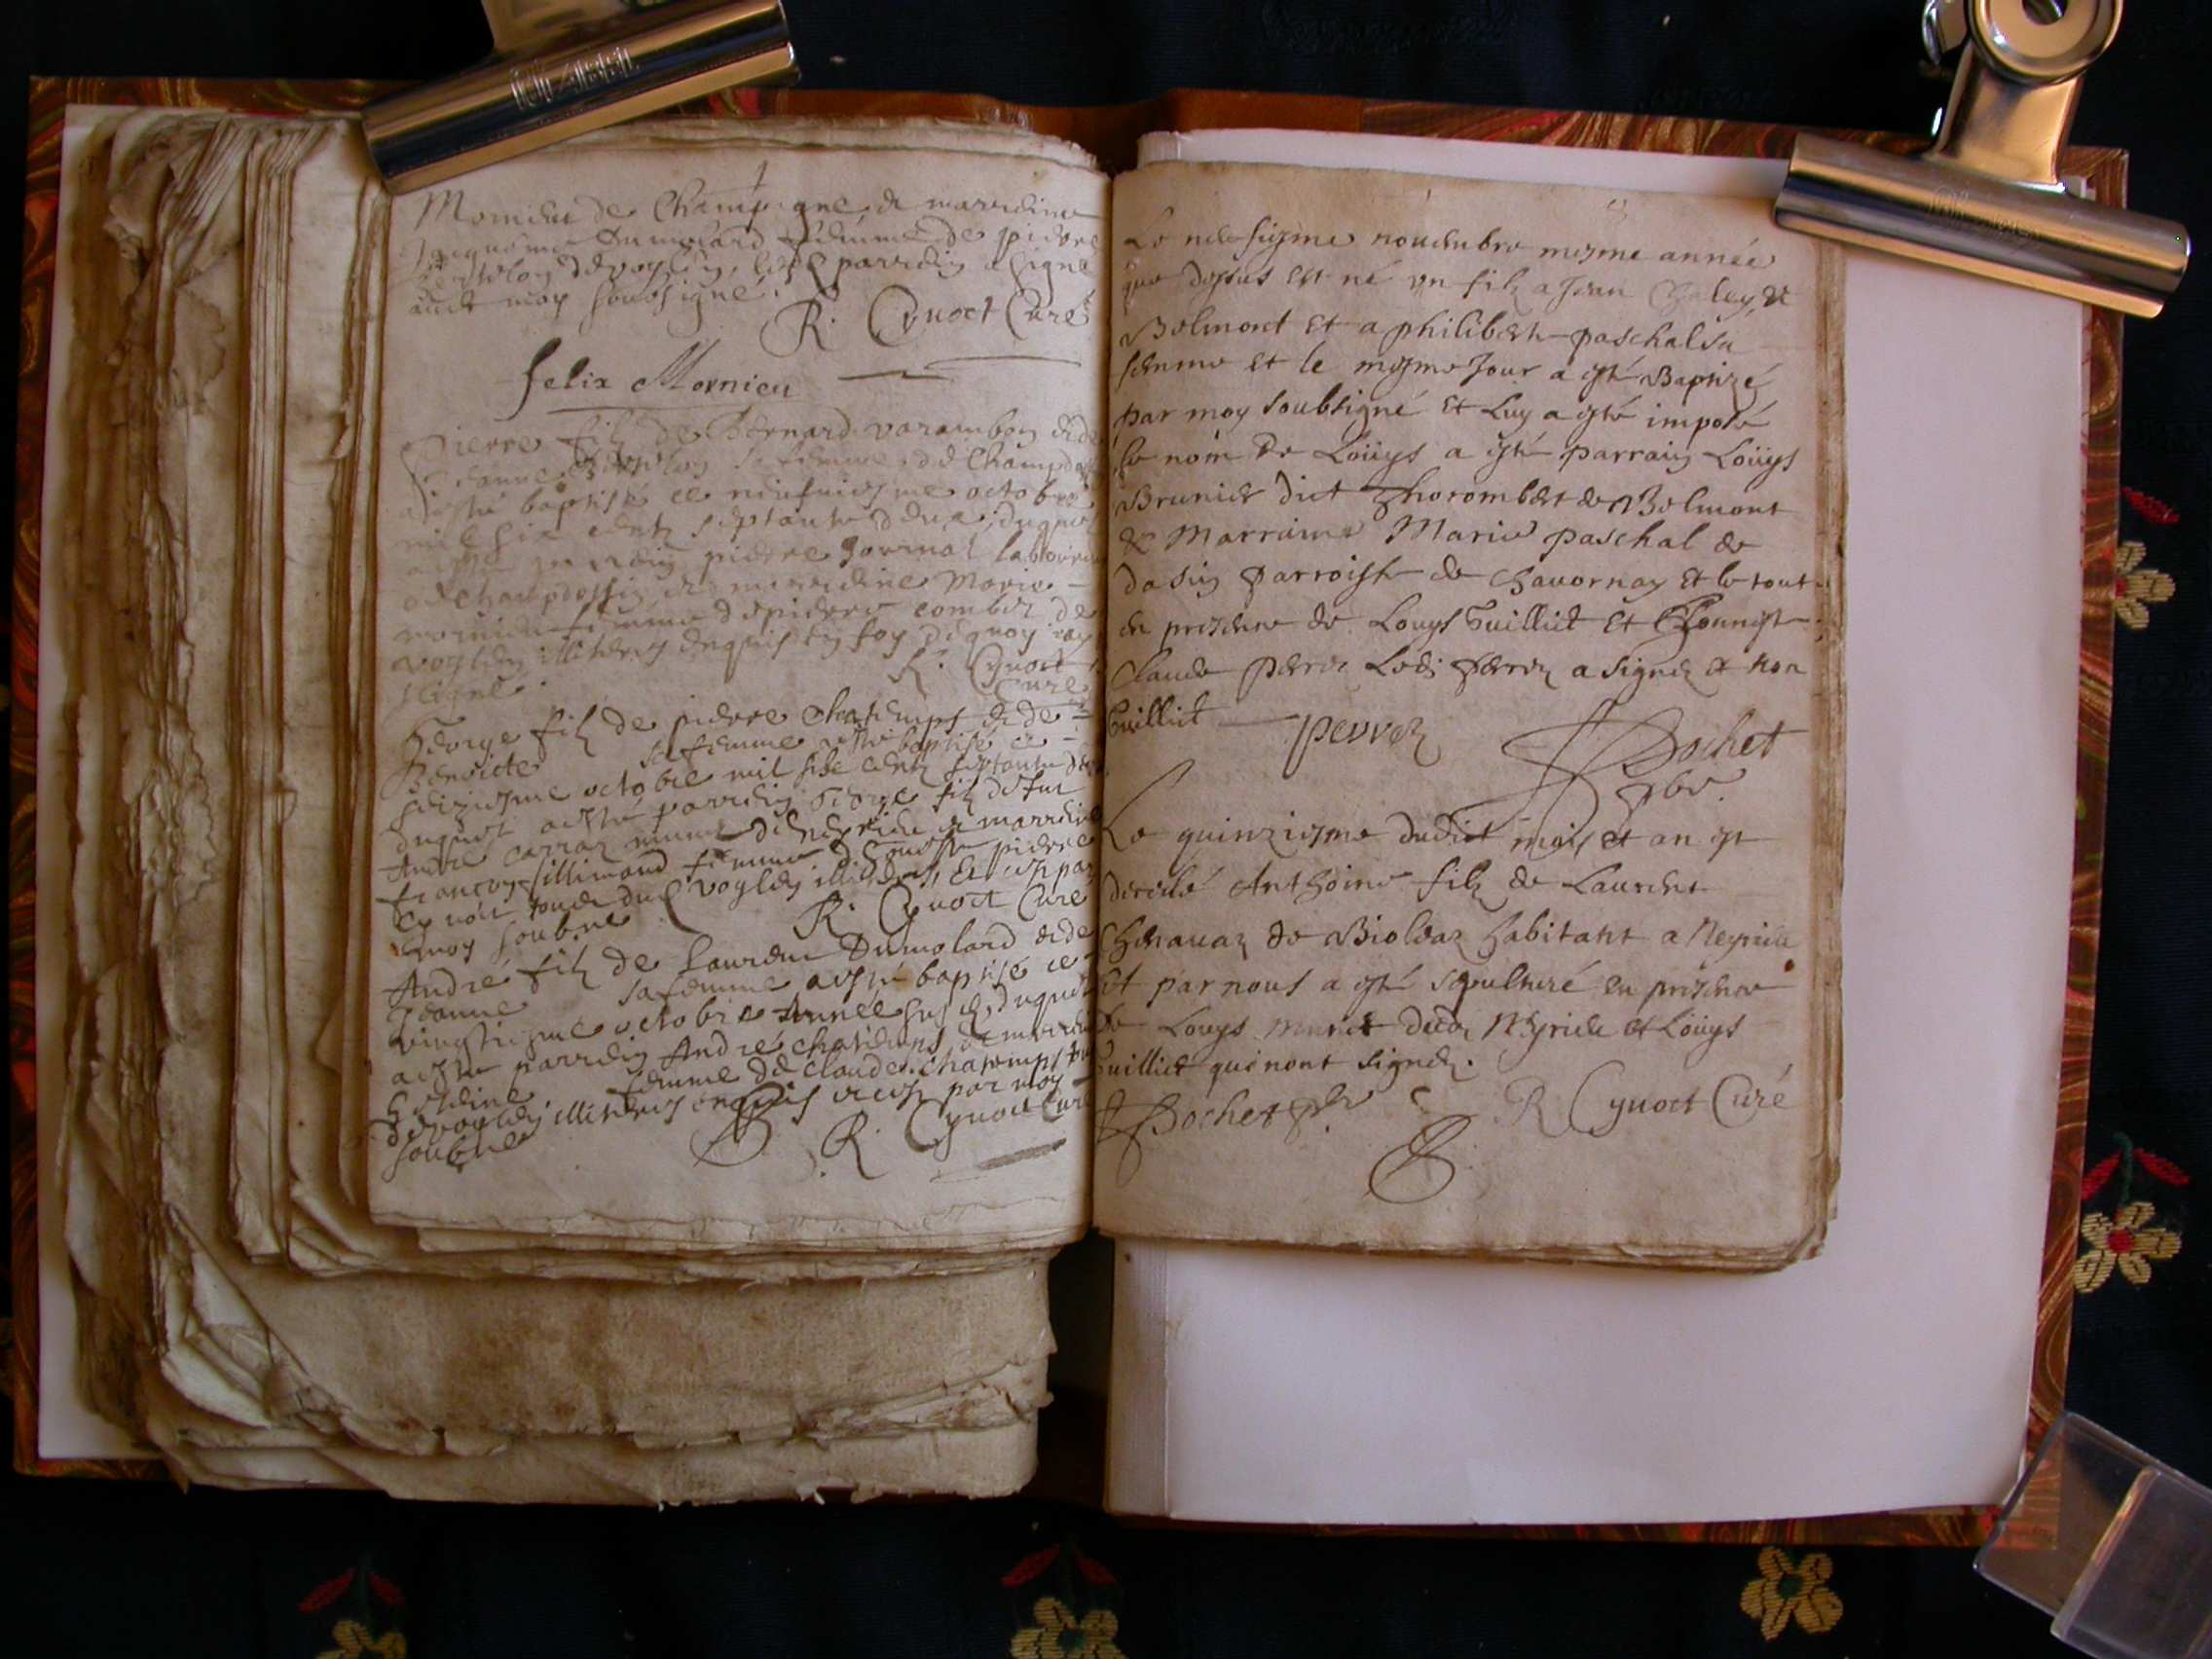 Mornieu de Champagne & marreine
Jacquême Dumolard femme de pierre
de voglen, led parrein a signé
avec moy soubsigné.
R. Cynoct Curé
felix Mornieu
Pierre filz de Bernard varambon & de
Jeanne sa femme, de
a esté baptisé ce neufuiesme octobre
mil six centz septante deux, duquel
a esté parrein pierre Jornal laboureur
de & marreine Marie
mornieu femme de pierre combet de
voglen illiteres enquis en foy de quoy iay
signé.
R. Cynoct
Curé
George filz de pierre chatemps & de
Benoicte sa femme a esté baptisé ce
seiziesme octobre mil size centz septante deux
duquel a esté parrein George filz de fut
André carraz & marreine
françoyse sillimand femme d' pierre
Cynoct tous dud voglen illiteres, & receu par
moy soubne
R. Cynoct Curé
André filz de Laurent Dumolard & de
Jeanne sa femme a esté baptisé ce
vingtiesme octobre Année susd, duquel
a esté parrein André chatemps, & marreine
femme de Claude chatemps
de voglen illiteres enquis receu par moy
soubne
R. Cynoct Curé
Le neufiesme nouembre mesme année
que dessus est né un filz a Jean Chaley, de
Belmont et a philiberte paschal sa
femme et le mesme Jour a esté Baptizé
par moy soubsigné et Luy a esté imposé
le nom de Loüys a esté parrain Loüys
Brunier dict Thorombert de Belmont
& Marraine Marie paschal de
dasin parroisse de Chavornay et le tout
en presence de Louys Guilliet et honneste
Claude perret Led perret a signé et non
Guilliet perret JBochet
pbr.
Le quinziesme dudict mois et an est
decedé Anthoine filz de Laurent
Chenavaz de Bioleaz habitant a Neyrieu
et par nous a esté sepulturé en presence
de Louys munet dud Neyrieu et Loüys
Guilliet qui nont signé.
JBochet pbr R Cynoct Curé